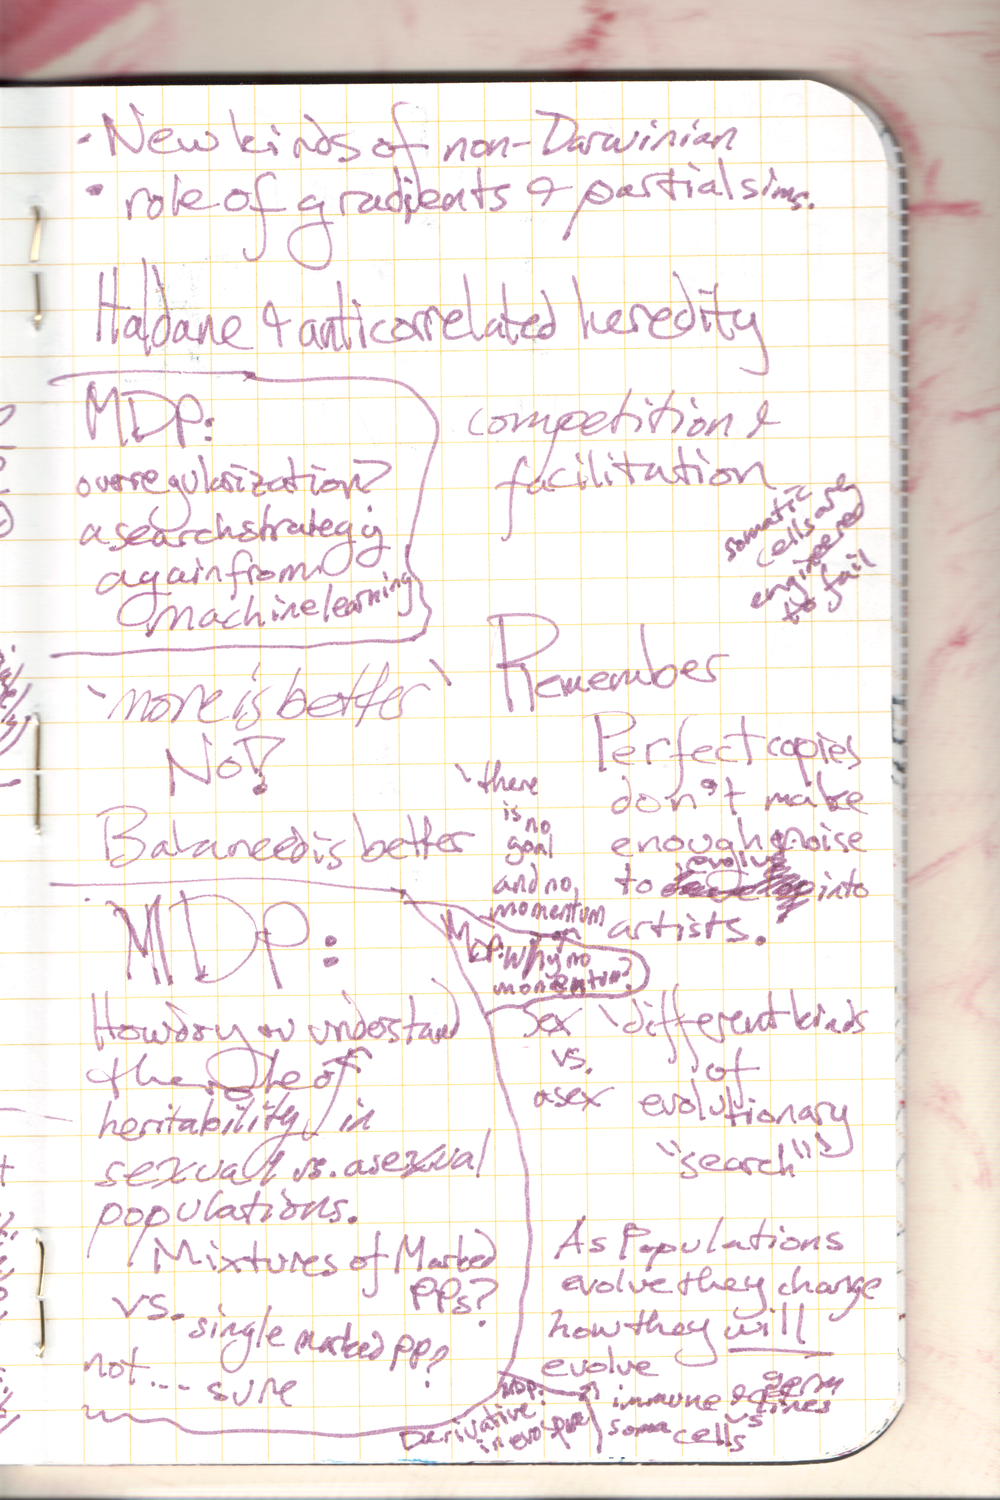 · New kinds of non-Darwinian
· role of gradients & partial sims.
Haldane & anticorrelated heredity
MDP:
overregularization?
a search strategy
again from
machine learning
competition &
facilitation
somatic
cells are
engineered
to fail
`more is better`
No!
Balanced is better
Remember
Perfect copies
don't make
enough noise
to evolve into
artists.
`there
is no
goal
and no
momentum
MDP: why no
momentum?
MDP:
How do you understand
the role of
heritability in
sexual vs. asexual
populations.
Mixtures of Marked
PPs?
vs.
single marked pp?
not... sure
Sex
vs.
asex
`different kinds
of
evolutionary
"search"`
As Populations
evolve they change
how they will
evolve
MDP:
Derivative
in evol
immune & germ
lines
vs
soma cells